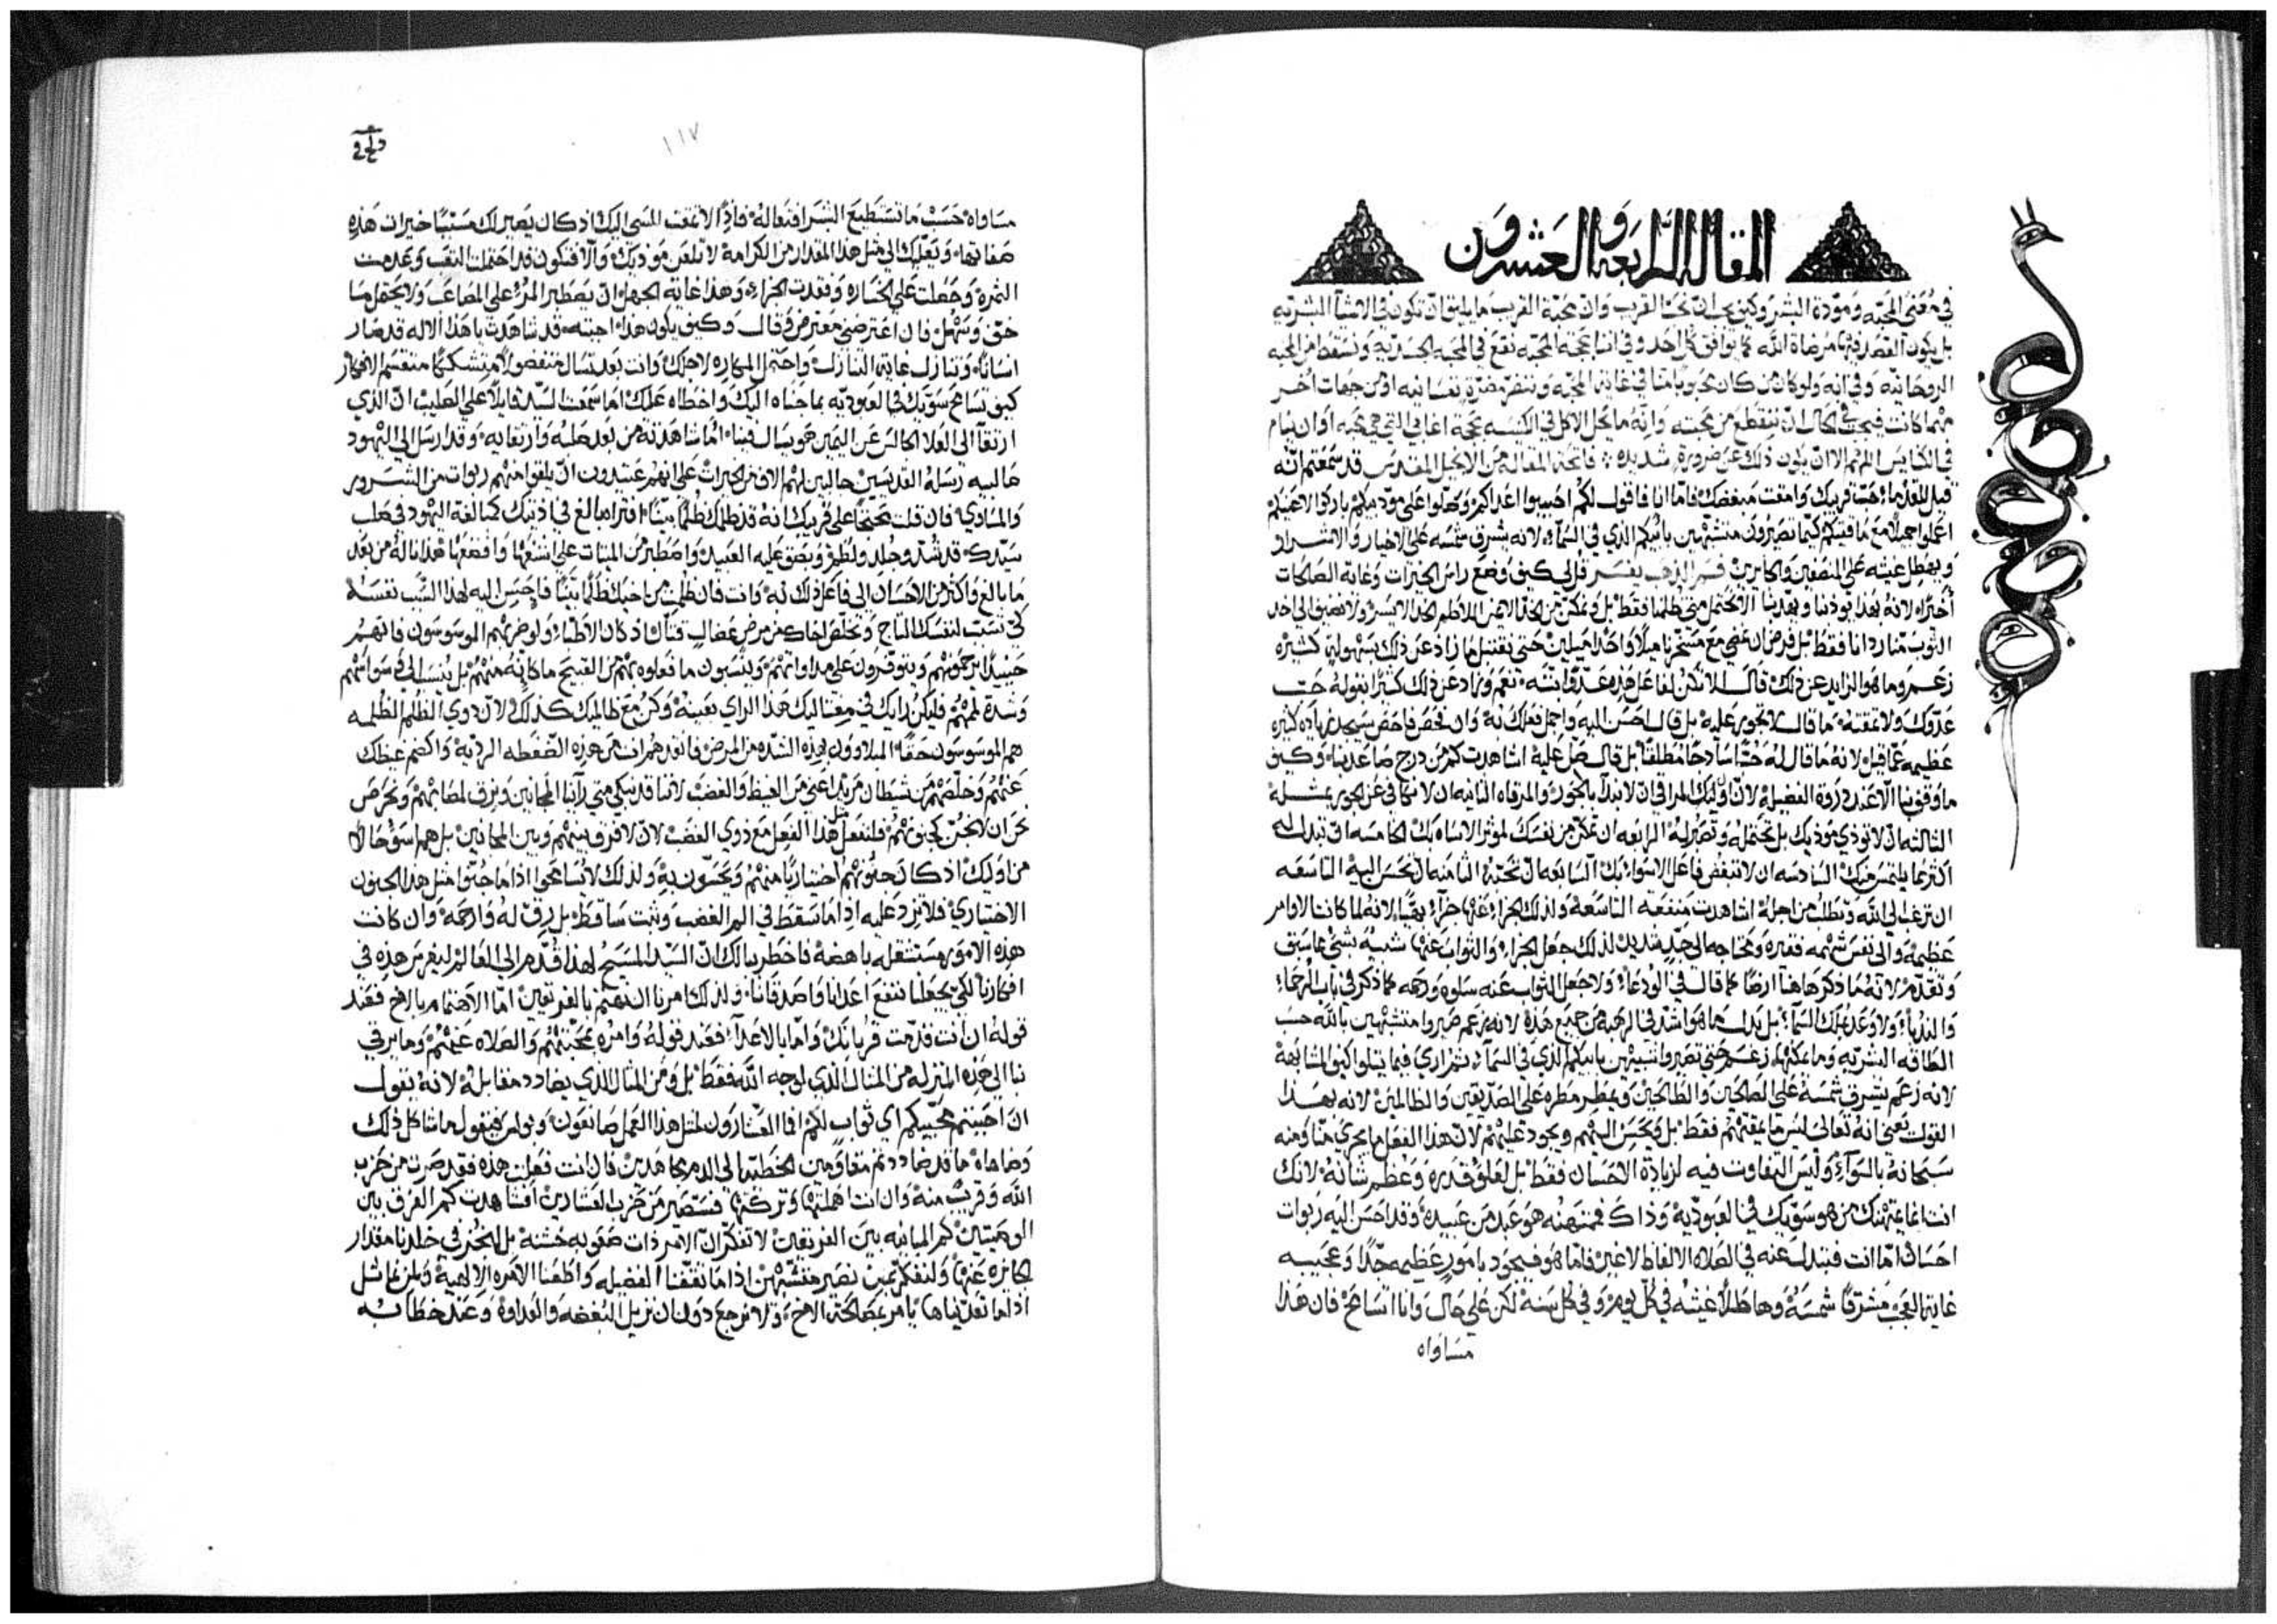 المقاله الرابعه والعشرون
في معنى المحبه ومودة البشر وكيف يجب ان نحب القريب وان محبة القريب ما يليق ان تكون في الاشيآ البشريه
بل يكون القصد فيها مرضاة الله كما يوافق كل احد وفي اننا بحجة المحبه نقع في المحبه الجسديه ونسقط من المحبه
الروحانيه وفي انه ولو كان من كان محبوبا منا في غاية المحبه وننضر مضرة نفسانيه او من جهات اخر
مهما كانت فيجب في الحال ان ننقطع من محبته وانه ما يحل الاكل في الكنيسه بحجة اغابي التي هي محبه او ان ينام
في الكنايس اللهم الا ان يكون ذلك عن ضرورة شديده فاتحة المقاله من الانجيل المقدس قد سمعتم انه
قيل للقدما حب قريبك وامقت مبغضك فاما انا فاقول لكم احبوا اعداكم وصلوا على موذيكم باركوا لاعنيكم
اعملوا جميلا مع ماقتيكم كيما تصيرون متشبهين بابيكم الذي في السمآ لانه يشرق شمسه على الاخيار والاشرار
ويهطل غيثه على المنصفين والجايرين فسر الذهب يفسر قل لي كيف وضع راس الخيرات وغاية الصالحات
اخيرا لانه بهذا يودنا ويفدينا لا نحتمل متى ظلما فقط بل ونمكن من لحانا الايمن اللاطم الخد الايسر ولا نضيف الى احد
الثوب منا ردانا فقط بل فرض ان نمضي مع مسخرنا ميلا واحدا ميلين حتى نقتبل ما زاد عن ذلك بسهوله كثيره
زعم وما هو الزايد عن ذلك قال لا تكن لفاعل هذه عدوا نعم وزاد عن ذلك كثيرا بقوله حب
عدوك ولا تمقته ما قال لا تجور عليه بل قال احسن اليه واجمل فعلك به وان فحص فاحص سيجد زياده كثيره
عظيمه عما قيل لانه ما قال له حبا سادجا مطلقا بل قال صل عليه اشاهدت كم من درج صاعدنا وكيف
ما وقوفنا الا عند ذروة الفضيله لان اوليك المراقي ان لا نبدأ بالجور والمرقاه الثانيه ان لا نكافي عن الجور بمثله
الثالثه ان لا توذي موذيك بل تحتمله وتصبر له الرابعه ان تمكن من نفسك لموثر الاساه بك الخامسه ان تبدل له
اكثر مما يلتمس منك السادسه ان لا تبغض فاعل الاسواء بك السابعه ان تحبه الثامنه ان تحسن اليه التاسعه
ان ترغب الى الله وتطلب من اجله اشاهدت منفعه التاسعه ولذلك الجزا عنها جزآء بهيا لانه لما كانت الاوامر
عظيمه والى نفس شهمه فقيره ومحتاجه الى جد شديد لذلك جعل الجزاء والثواب عنها شبيه بشي مما سبق
وتقدم لانه ما ذكرها هنا ارضا كما قال في الودعاء ولا جعل الثواب عنه سلوه ورحمه كما ذكر في باب الرحماء
والندباء ولا وعد بملك السمآء بل بدل ما هو اشد في الرهبه من جميع هذه لانه زعم صيروا متشبهين بالله حسب
الطاقه البشريه وما يمكنها زعم حتى تصيروا شبيهين بابيكم الذي في السمآء ثم اري فيما يتلوا كيف المشابهة
لانه زعم يشرق شمسه على الصالحين والطالحين ويمطر مطره على الصديقين والظالمين لانه بهذا
القول يعني انه تعالى ليس ما يمقتهم فقط بل ويحسن اليهم ويجود عليهم لان هذا الفعل ما يجري منا ومنه
سبحانه بالسوآء وليس التفاوت فيه لزيادة الاحسان فقط بل لعلو قدره وعظم شانه لانك
انت انما يمتهنك من هو سويك في العبوديه وذاك فيمتهنه هو عبد من عبيده وقد احسن اليه ربوات
احسان اما انت فتبدل عنه في الصلاه الالفاظ لا غير فاما هو فيجود بامور عظيمه جدا وعجيبه
غاية العجب مشرقا شمسه وهاطلا غيثه في كل يوم وفي كل سنه لكن على حال وانا اتسامح فان هذا
مساواه
١١٧
مساواه حسب ما تستطيع البشر افتعاله فاذا لا تمقت المسي اليك اذ كان يصير لك مسببا خيرات هذه
صفاتها ويعليك الى مثل هذا المقدار من الكرامه لا تلعن موذيك والا فتكون قد احتملت التعب وعدمت
الثمره وحصلت على الخساره وفقدت الجزاء وهذا غاية الجهل ان يصطبر المرء على المصاعب ولا يحتمل ما
خف وسهل فان اعترضني معترض وقال وكيف يكون هذا اجبته قد شاهدت يا هذا الاله قد صار
انسانا وتنازل غاية التنازل واحتمل المكاره لاجلك وانت بعد تسال متفصولا متشككا متقسم الافكار
كيف تسامح سويك في العبوديه بما جناه اليك واخطاه عليك اما سمعت لسيد قايلا على الصليب ان الذي
ارتقا الى العلا الجالس عن اليمين هو يسال فينا اما شاهدته من بعد صلبه وارتقايه وقد ارسل الى اليهود
صالبيه رسله القديسين جالبين لهم الاف من الخيرات على انهم عتيدون ان يلقوا منهم ربوات من الشرور
والمساوي فان قلت محتجا على قريبك انه قد ظلمك ظلما بينا افتراه بالغ في اذيتك كمبالغة اليهود في صلب
سيدك قد شد وجلد ولطم وبصق عليه العبيد واصطبر من الميتات على اشنعها وافضعها هذا ناله من بعد
ما بالغ واكثر من الاحسان الى فاعل ذلك به وانت فان ظلمت من اخيك ظلما بينا فاحسن اليه لهذا السبب نفسه
كي تسبب لنفسك التاج وتخلص اخاك من مرض عضال فان اذ كان الاطباء ولو ضربهم الموسوسون فانهم
حينيذ يرحمونهم ويتوفرون على مداواتهم وينسبون ما فعلوه بهم من القبيح ما كانه منهم بل ينسب الى وسواسهم
وشدة المهم فليكن رايك في مغتاليك هذا الراي بعينه وكن مع ظالميك كذلك لان ذوي الظلم الظلمه
هم الموسوسون حقا المبلوون بهذه الشده من المرض فانقذهم انت من هذه الضغطه الرديه واكضم غيظك
عنهم وخلصهم من شيطان مريد اعني من الغيظ والغضب لاننا قد نبكي متى رآنا المجانين ونرق لمصابهم ونحرص
نحن ان لا نجن كجنونهم فلنفعل مثل هذا الفعل مع ذوي الغضب لان لا فرق بينهم وبين المجانين بل هم اسوا حالا
من اوليك اذ كان جنونهم اختياريا منهم ويحسون به ولذلك لا يسامحوا اذا ما جنوا مثل هذا الجنون
الاختياري فلا تزد عليه اذا ما سقط في الم الغضب وثبت ساقطا بل رق له وارحمه وان كانت
هذه الامور مستثقله باهضه فاخطر ببالك ان السيد المسيح لهذا قدم الى العالم ليغرس هذه في
افكارنا لكي يجعلنا ننفع اعدانا واصدقانا ولذلك امرنا ان نهتم بالفريقين اما الاهتمام بالاخ فعند
قوله ان انت قدمت قربانك واما بالاعداء فعند قوله وامره بمحبتهم والصلاه عنهم وما يرقي
بنا الى هذه المنزله من المثال الذي لوجه الله فقط بل ومن المثال الذي يضادد مقابله لانه يقول
ان احببتم محبيكم اي ثواب لكم اما العشارون لمثل هذا العمل صانعون وبولس فيقول ما شاكل ذلك
وضاهاه ما قد ضاددتم مقاومين الخطيه الى الدم مجاهدين فان انت فعلت هذه فقد صرت من حزب
الله وقريب منه وان انت اهملتها وتركتها فستصير من حزب العشارين افشاهدت كم الفرق بين
الوصيتين كم المباينه بين الفريقين لا تفكر ان الامر ذات صعوبه خشنه بل لنخبر في خلدنا مقدار
الجايزه عنها ولنفكر بمن نصير متشبهين اذا ما تقفنا الفضيله واطعنا الامره الالهيه ولمن نماثل
اذا ما تعديناها يامر بمصالحة الاخ ولا نرجع دون ان نزيل البغضه والعداوة وعند خطابه